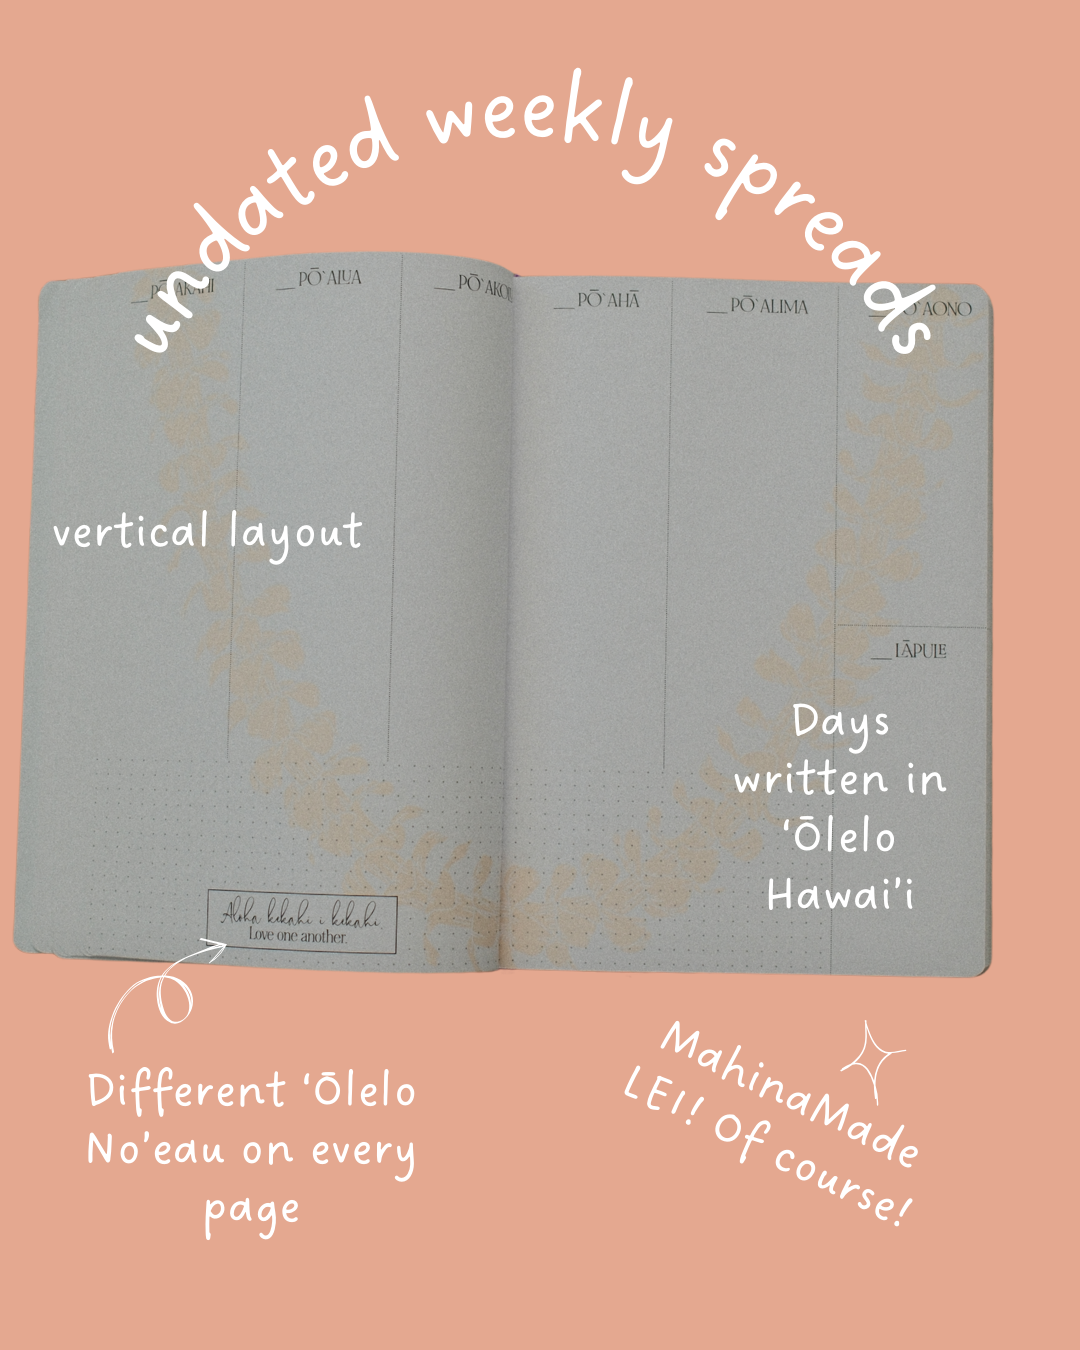 undated weekly spreads
__ PŌ`AKAHI
__ PŌ`ALUA
__ PŌ`AKOL
__ PŌ`AHĀ
__ PŌ`ALIMA
__ PŌ`AONO
vertical layout
__ LĀPULE
Days
written in
‘Ōlelo
Hawai’i
Aloha kekahi i kekahi
Love one another.
Different ‘Ōlelo
No’eau on every
page
MahinaMade
LEI! Of course!